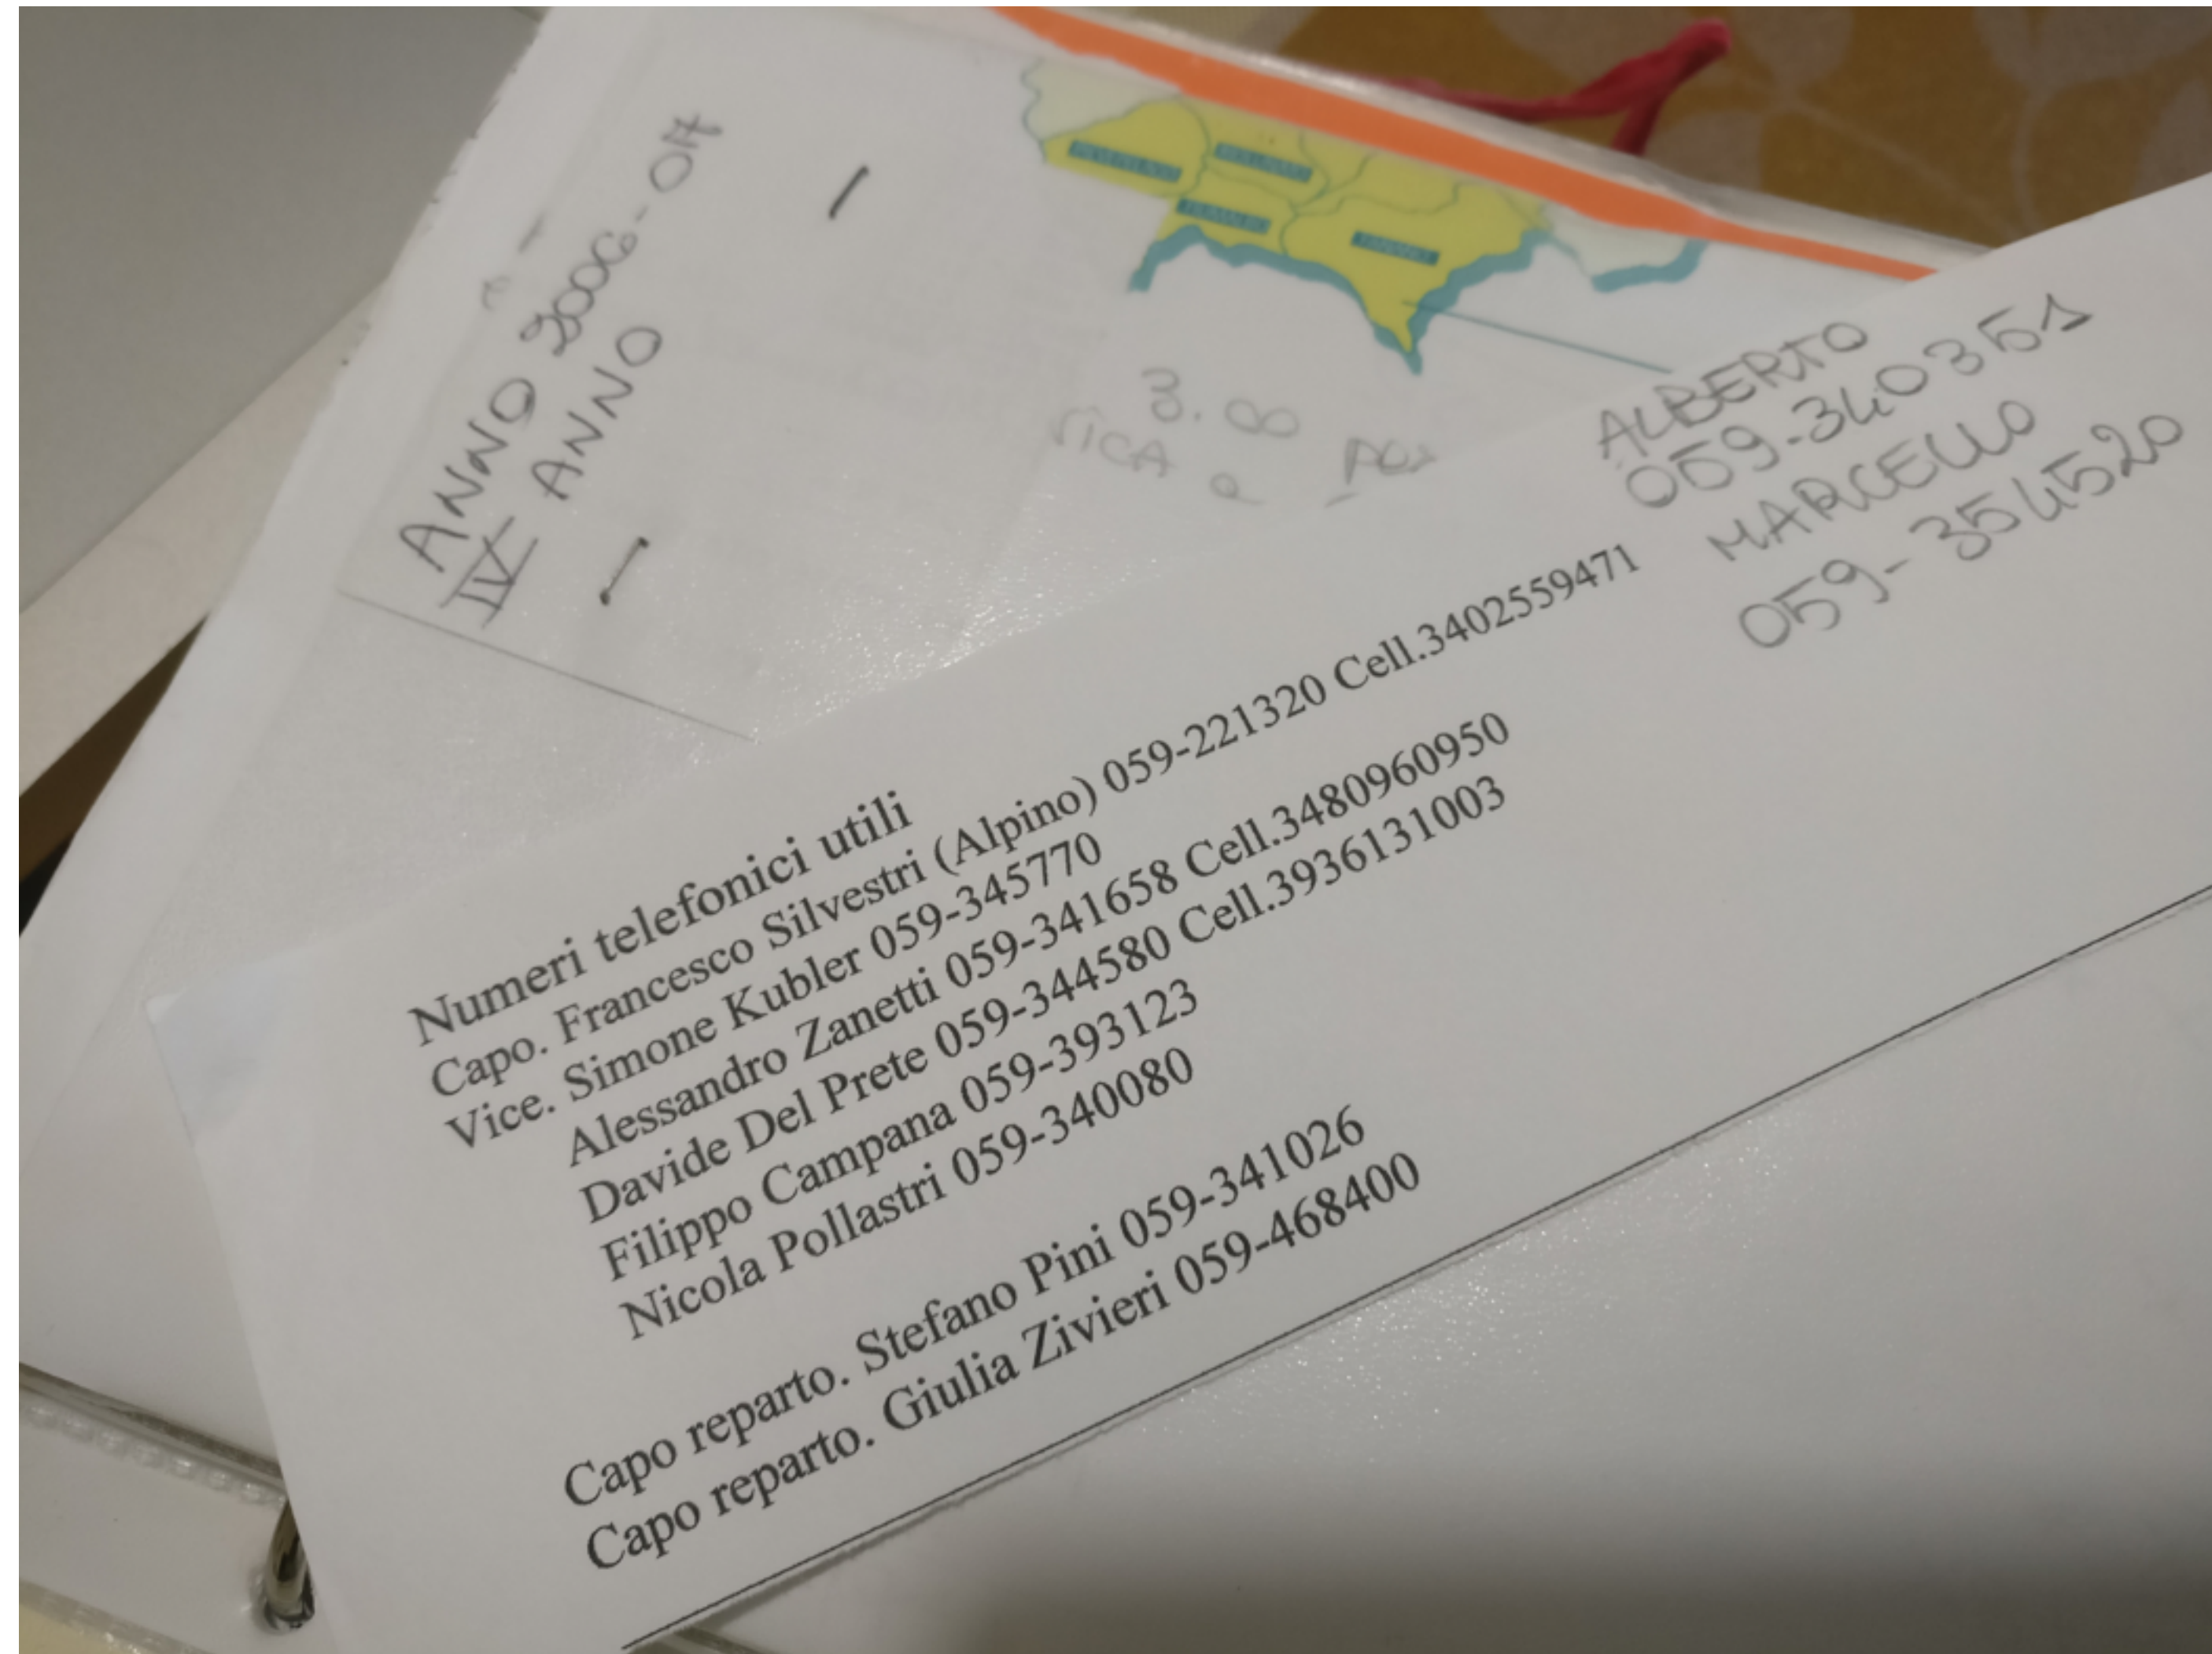 ANNO 2006-07
IV ANNO
3.
ALBERTO
059-340351
MARCELLO
059-354520
Numeri telefonici utili
Capo. Francesco Silvestri (Alpino) 059-221320 Cell.3402559471
Vice. Simone Kubler 059-345770
Alessandro Zanetti 059-341658 Cell.3480960950
Davide Del Prete 059-344580 Cell.3936131003
Filippo Campana 059-393123
Nicola Pollastri 059-340080
Capo reparto. Stefano Pini 059-341026
Capo reparto. Giulia Zivieri 059-468400